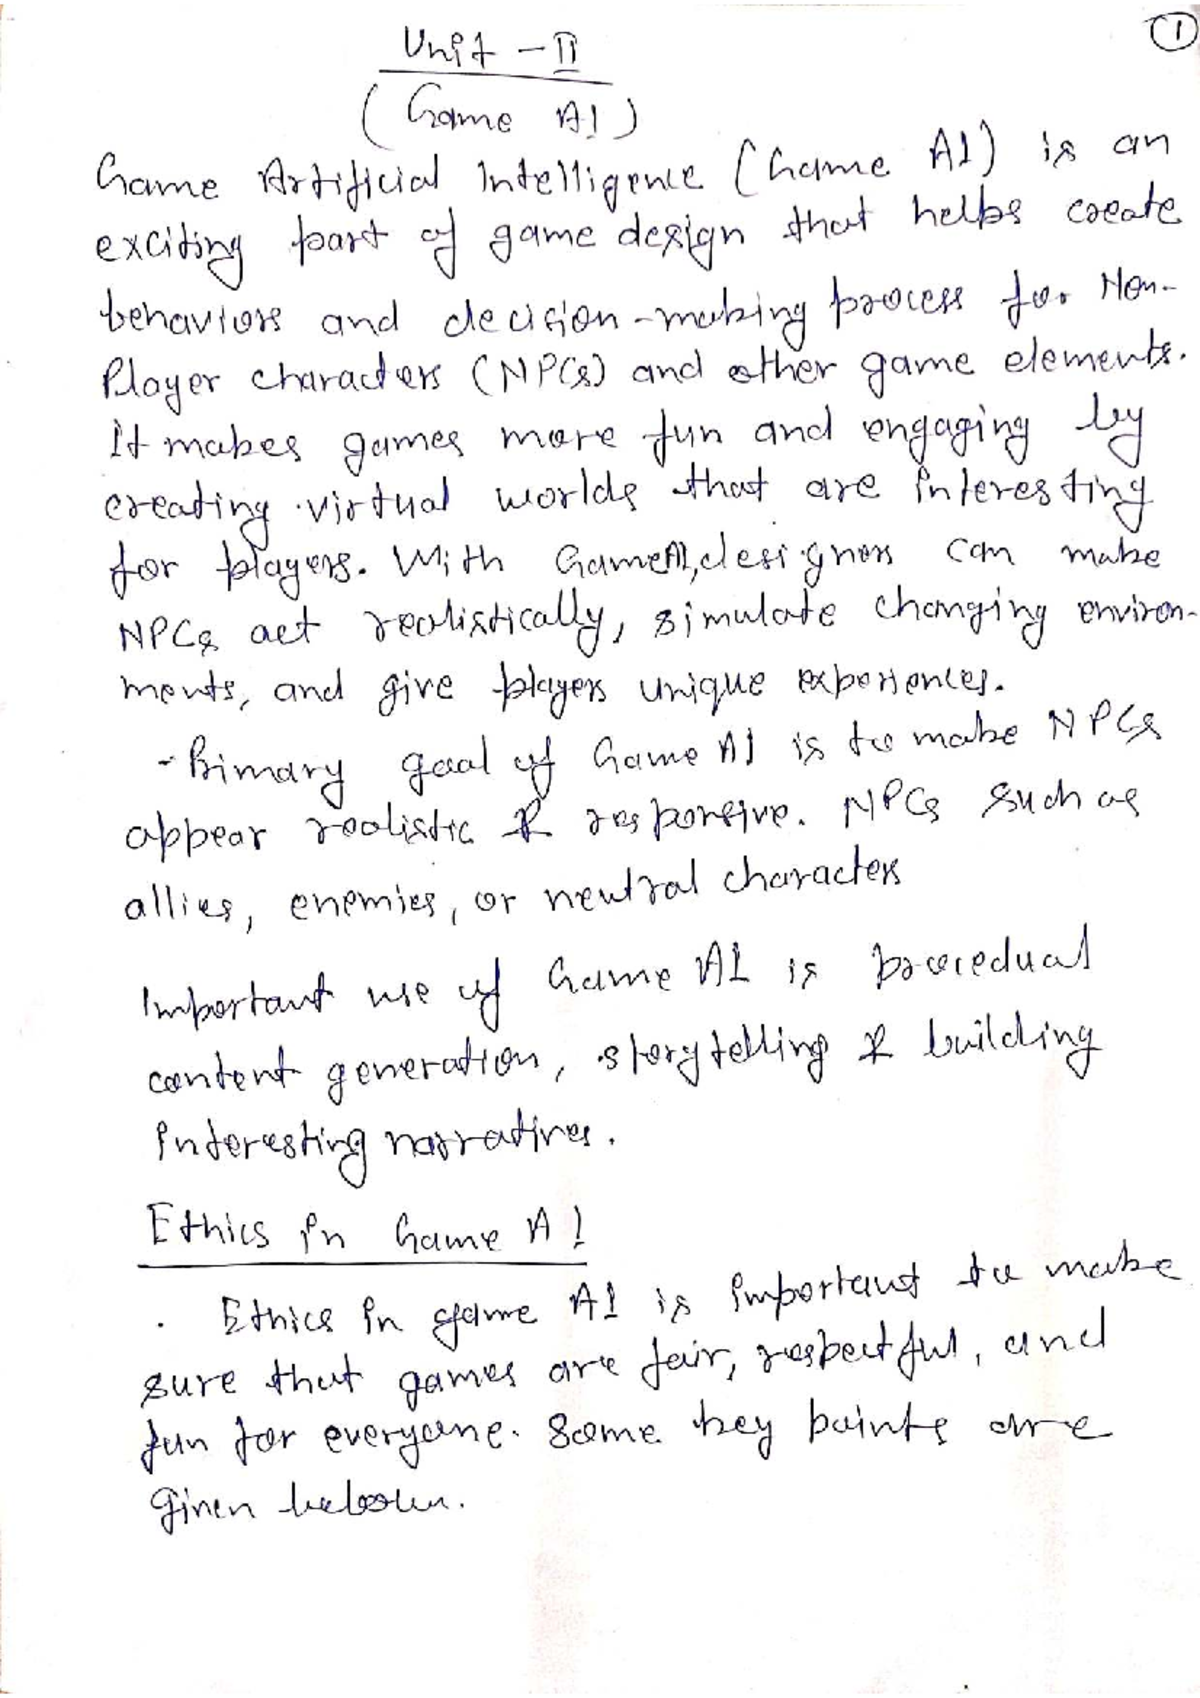 1
Unit - II
(Game AI)
Game Artificial Intelligence (Game AI) is an
exciting part of game design that helps create
behaviors and decision-making process for Non-
Player characters (NPCs) and other game elements.
It makes games more fun and engaging by
creating virtual worlds that are interesting
for players. With GameAI, designers can make
NPCs act realistically, simulate changing environ-
ments, and give players unique experiences.
- Primary goal of Game AI is to make NPCs
appear realistic & responsive. NPCs such as
allies, enemies, or neutral characters
Important use of Game AI is procedual
content generation, storytelling & building
interesting narratives.
Ethics in Game AI
. Ethics in game AI is important to make
sure that games are fair, respectful, and
fun for everyone. Some key points are
given below.